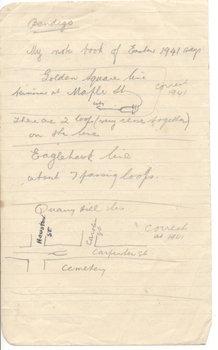 Bendigo
My note book of Easter 1941 says
Golden Square line
terminus at Maple St
correct
1941
There are 2 loops (very close together)
on the line
Eaglehawk line
about 7 passing loops.
Quarry Hill line
Houston
St
Carpenter St
Correct
at 1941
Cemetery